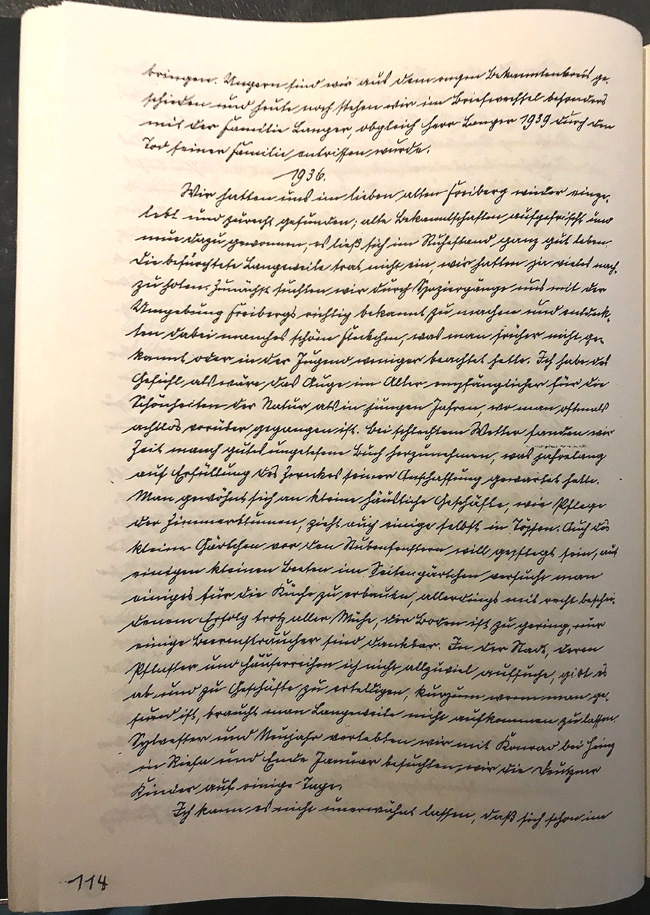 bringen. Ungern sind wir aus dem engen Bekanntenkreis ge-
schieden und heute noch stehen wir im Briefwechsel besonders
mit der Familie Langer, obgleich Herr Langer 1939 durch den
Tod seiner Familie entrissen wurde.
1936.
Wir hatten uns im lieben alten Freiberg wieder einge-
lebt und zurecht gefunden; alte Bekanntschaften aufgefrischt und
neue dazu gewonnen, es ließ sich im Ruhestand ganz gut leben.
Die befürchtete Langeweile trat nicht ein, wir hatten ja vieles nach-
zu holen. Zunächst suchten wir durch Spaziergänge uns mit der
Umgebung Freibergs richtig bekannt zu machen und entdeck-
ten dabei manches schöne Fleckchen, was man früher nicht ge-
kannt oder in der Jugend weniger beachtet hatte. Ich habe das
Gefühl als wäre, das Auge im Alter empfänglicher für die
Schönheiten der Natur als in jungen Jahren, wo man oftmals
achtlos vorüber gegangen ist. Bei schlechtem Wetter fanden wir
Zeit manch gutes ungelesene Buch herzunehmen, was jahrelang
auf Erfüllung des Zweckes seiner Anschaffung gewartet hatte.
Man gewöhnt sich an kleine häusliche Geschäfte, wie Pflege
der Zimmerblumen, zieht auch einige selbst in Töpfen. Auch das
kleine Gärtchen vor den Stubenfenstern will gepflegt sein, aus
einigen kleinen Beeten im Seitengärtchen versucht man
einiges für die Küche zu erbauen, allerdings mit recht beschei-
denem Erfolg trotz aller Mühe, der Boden ist zu gering, nur
einige Beerensträucher sind dankbar. In der Stadt, deren
Pflaster und Häuserreihen ich nicht allzuviel aufsuche, gibt es
ab und zu Geschäfte zu erledigen, kurzum wenn man ge-
sund ist, braucht man Langeweile nicht aufkommen zu lassen.
Sylvester und Neujahr verlebten wir mit Konrad bei Heinz
in Riesa und Ende Januar besuchten wir die Deutzner
Kinder auf einige Tage.
Ich kann es nicht unerwähnt lassen, daß sich schon im
114